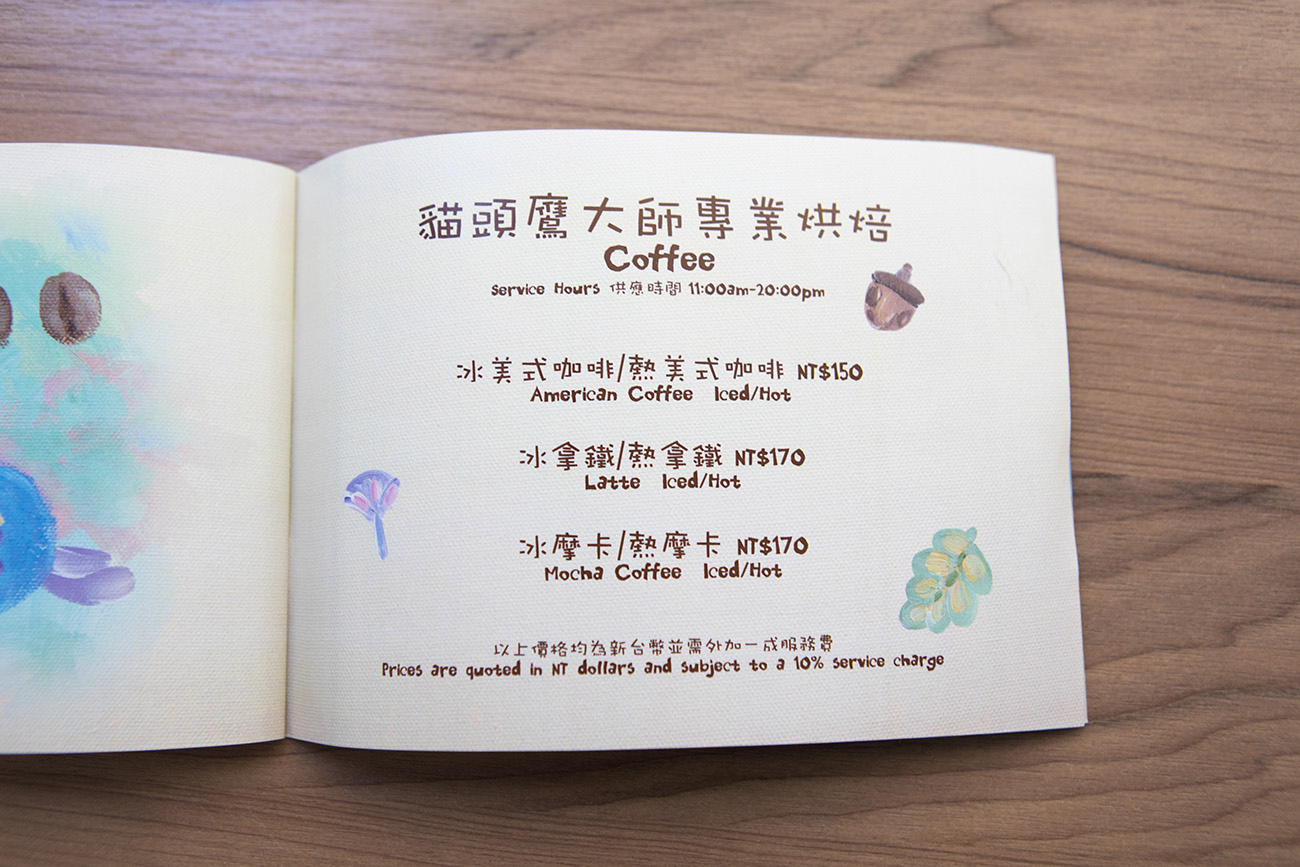 貓頭鷹大師專業烘焙
Coffee
Service Hours 供應時間 11:00am-20:00pm
冰美式咖啡/熱美式咖啡 NT$150
American Coffee Iced/Hot
冰拿鐵/熱拿鐵 NT$170
Latte Iced/Hot
冰摩卡/熱摩卡 NT$170
Mocha Coffee Iced/Hot
以上價格均為新台幣並需外加一成服務費
Prices are quoted in NT dollars and subject to a 10% service charge